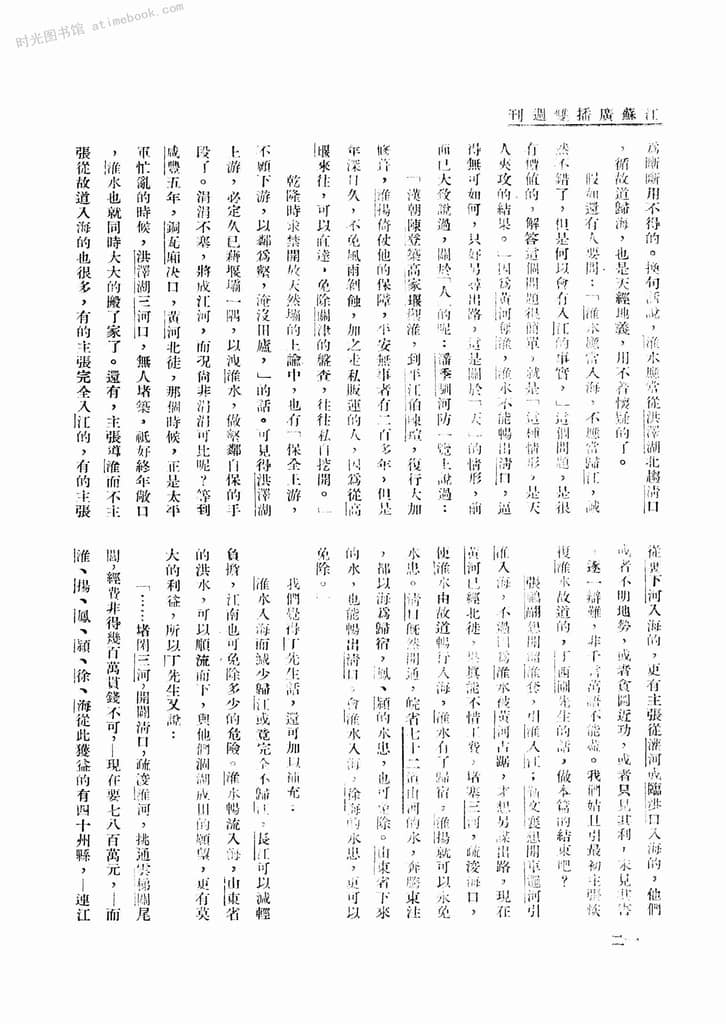 时光图书馆 atimebook.com
江蘇廣播雙週刊
爲斷斷用不得的。換句話說，淮水應當從洪澤湖北趨清口
，循故道歸海，也是天經地義，用不着懷疑的了。
假如還有人要問：「淮水應當入海，不應當歸江，誠
然不錯了，但是何以會有入江的事實，」這個問題，是很
有價值的，解答這個問題很簡單，就是「這種情形，是天
人夾攻的結果。」因爲黃河奪淮，淮水不能暢出清口，逼
得無可如何，只好另尋出路，這是關於「天」的情形，前
面已大致說過，關於「人」的呢：潘季馴河防一覽上說過：
「漢朝陳登築高家堰觀淮，到平江伯陳瑄，復行大加
修葺，淮揚倚使他的保障，平安無事者有二百多年，但是
年深日久，不免風雨剝蝕，加之走私販運的人，因爲從高
堰來往，可以直達，免除關津的盤查，往往私自挖開。」
乾隆時求禁開放天然壩的上諭中，也有「保全上游，
不顧下游，以鄰爲壑，淹沒田廬，」的話。可見得洪澤湖
上游，必定久已藉堰壩一隅，以洩淮水，做壑鄰自保的手
段了。涓涓不塞，將成江河，而況尙非涓涓可比呢？等到
咸豐五年，銅瓦廂决口，黃河北徒，那個時候，正是太平
軍忙亂的時候，洪澤湖三河口，無人堵築，祇好終年敞口
，淮水也就同時大大的搬了家了。還有，主張導淮而不主
張從故道入海的也很多，有的主張完全入江的，有的主張
從裏下河入海的，更有主張從灌河或臨洪口入海的，他們
或者不明地勢，或者貪圖近功，或者只見其利，未見其害
，逐一辯難，非千言萬語不能盡。我們姑且引最初主張恢
復淮水故道的，丁西圃先生的話，做本篇的結束吧？
淮入海，不過因爲淮水被黃河占踞，才想另謀出路，現在
黃河已經北徒，果真能不惜工費，堵塞三河，疏浚海口，
使淮水由故道暢行入海，淮水有了歸宿，淮揚就可以永免
水患。清口既然開通，皖省七十二道山河的水，奔騰東注
，都以海爲歸宿，鳳、潁的水患，也可免除。山東省下來
的水，也能暢出清口，會淮水入海，徐海的水患，更可以
免除。」
我們覺得丁先生話，還可加以補充：
淮水入海而減少歸江或竟完全不歸江，長江可以減輕
負擔，江南也可免除多少的危險。淮水暢流入海，山東省
的洪水，可以順流而下，與他們涸湖成田的願望，更有莫
大的利益，所以丁先生又說：
「……堵閉三河，開闢清口，疏浚淮河，挑通雲梯關尾
閭，經費非得幾百萬貫錢不可，—現在要七八百萬元，—而
淮、揚、鳳、潁、徐、海從此獲益的有四十州縣，—連江
二